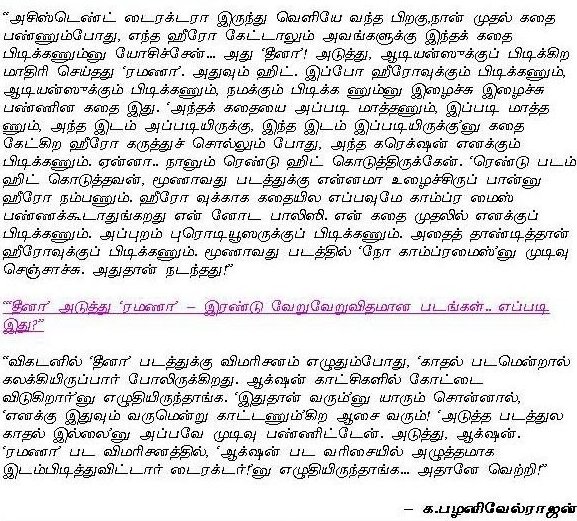 “அசிஸ்டெண்ட் டைரக்டரா இருந்து வெளியே வந்த பிறகு,நான் முதல் கதை
பண்ணும்போது, எந்த ஹீரோ கேட்டாலும் அவங்களுக்கு இந்தக் கதை
பிடிக்கணும்னு யோசிச்சேன்... அது ‘தீனா’! அடுத்து, ஆடியன்ஸுக்குப் பிடிக்கிற
மாதிரி செய்தது ‘ரமணா’. அதுவும் ஹிட். இப்போ ஹீரோவுக்கும் பிடிக்கணும்,
ஆடியன்ஸுக்கும் பிடிக்கணும், நமக்கும் பிடிக்க ணும்னு இழைச்சு இழைச்சு
பண்ணின கதை இது. ‘அந்தக் கதையை அப்படி மாத்தணும், இப்படி மாத்த
ணும், அந்த இடம் அப்படியிருக்கு, இந்த இடம் இப்படியிருக்கு’னு கதை
கேட்கிற ஹீரோ கருத்துச் சொல்லும் போது, அந்த கரெக்ஷன் எனக்கும்
பிடிக்கணும். ஏன்னா.. நானும் ரெண்டு ஹிட் கொடுத்திருக்கேன். ‘ரெண்டு படம்
ஹிட் கொடுத்தவன், மூணாவது படத்துக்கு என்னமா உழைச்சிருப் பான்னு
ஹீரோ நம்பணும். ஹீரோ வுக்காக கதையில எப்பவுமே காம்ப்ர மைஸ்
பண்ணக்கூடாதுங்கறது என் னோட பாலிஸி. என் கதை முதலில் எனக்குப்
பிடிக்கணும். அப்புறம் புரொடியூஸருக்குப் பிடிக்கணும். அதைத் தாண்டித்தான்
ஹீரோவுக்குப் பிடிக்கணும். மூணாவது படத்தில் ‘நோ காம்ப்ரமைஸ்’னு முடிவு
செஞ்சாச்சு. அதுதான் நடந்தது!”
“‘தீனா’ அடுத்து ‘ரமணா’ – இரண்டு வேறுவேறுவிதமான படங்கள்.. எப்படி
இது?”
“விகடனில் ‘தீனா’ படத்துக்கு விமரிசனம் எழுதும்போது, ‘காதல் படமென்றால்
கலக்கியிருப்பார் போலிருக்கிறது. ஆக்ஷன் காட்சிகளில் கோட்டை
விடுகிறார்’னு எழுதியிருந்தாங்க. ‘இதுதான் வரும்’னு யாரும் சொன்னால்,
‘எனக்கு இதுவும் வருமென்று காட்டணும்’கிற ஆசை வரும்! ‘அடுத்த படத்துல
காதல் இல்லை’னு அப்பவே முடிவு பண்ணிட்டேன். அடுத்து, ஆக்ஷன்.
‘ரமணா’ பட விமரிசனத்தில், ‘ஆக்ஷன் பட வரிசையில் அழுத்தமாக
இடம்பிடித்துவிட்டார் டைரக்டர்!’னு எழுதியிருந்தாங்க... அதானே வெற்றி!”
– க.பழனிவேல்ராஜன்